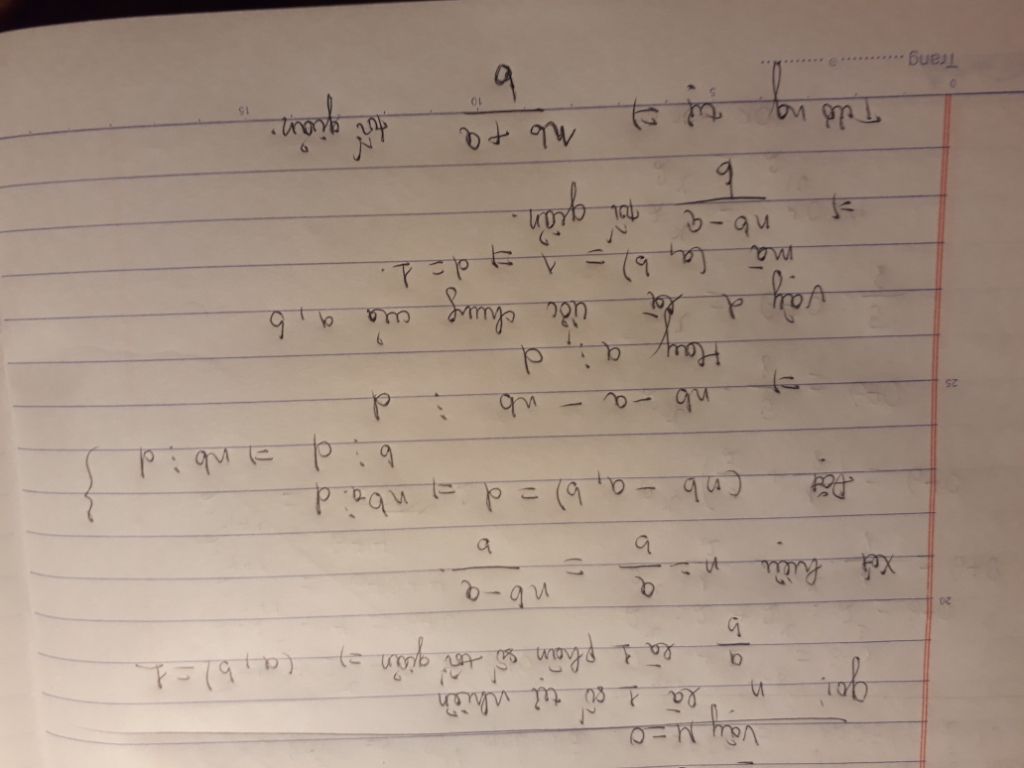 Vậy M = 0
gọi n là 1 số tự nhiên
a/b là 1 phân số tối giản => (a, b) = 1
Xét hiệu n = a/b = nb - a/b.
Đặt (nb - a, b) = d => nb a ⋮ d
b ⋮ d => nb ⋮ d
=> nb - a - nb ⋮ d
Hay a ⋮ d
Vậy d là ước chung của a, b
mà (a, b) = 1 => d = 1.
=> nb - a/b tối giản.
Tương tự => nb + a/b tối giản.
Trang
20
25
0
5
10
15